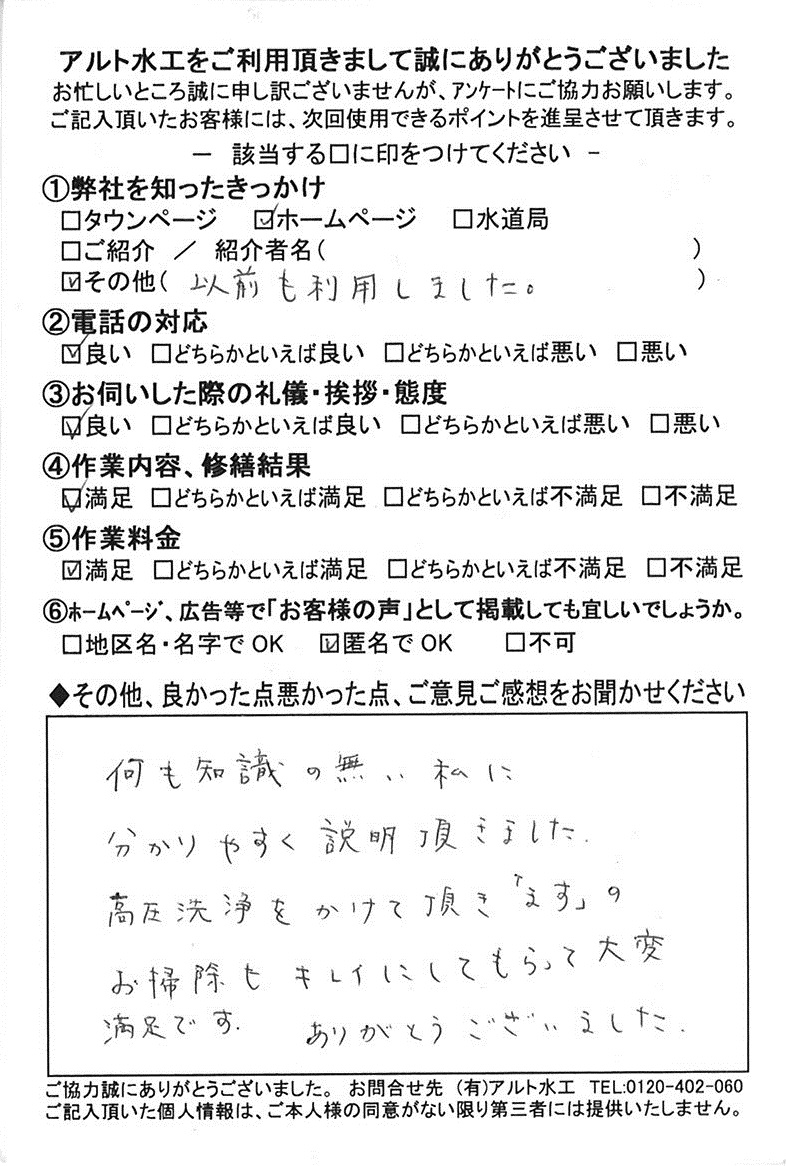 アルト水工をご利用頂きまして誠にありがとうございました
お忙しいところ誠に申し訳ございませんが、アンケートにご協力お願いします。
ご記入頂いたお客様には、次回使用できるポイントを進呈させて頂きます。
－ 該当する□に印をつけてください －
①弊社を知ったきっかけ
□タウンページ ☑ホームページ □水道局
□ご紹介 ／ 紹介者名( )
☑その他( 以前も利用しました。 )
②電話の対応
☑良い □どちらかといえば良い □どちらかといえば悪い □悪い
③お伺いした際の礼儀・挨拶・態度
☑良い □どちらかといえば良い □どちらかといえば悪い □悪い
④作業内容、修繕結果
☑満足 □どちらかといえば満足 □どちらかといえば不満足 □不満足
⑤作業料金
☑満足 □どちらかといえば満足 □どちらかといえば不満足 □不満足
⑥ホームページ、広告等で「お客様の声」として掲載しても宜しいでしょうか。
□地区名・名字でOK ☑匿名でOK □不可
◆その他、良かった点悪かった点、ご意見ご感想をお聞かせください
何も知識の無い私に
分かりやすく説明頂きました.
高圧洗浄をかけて頂き「ます」の
お掃除もキレイにしてもらって大変
満足です. ありがとうございました.
ご協力誠にありがとうございました。 お問合せ先 (有)アルト水工 TEL:0120-402-060
ご記入頂いた個人情報は、ご本人様の同意がない限り第三者には提供いたしません。